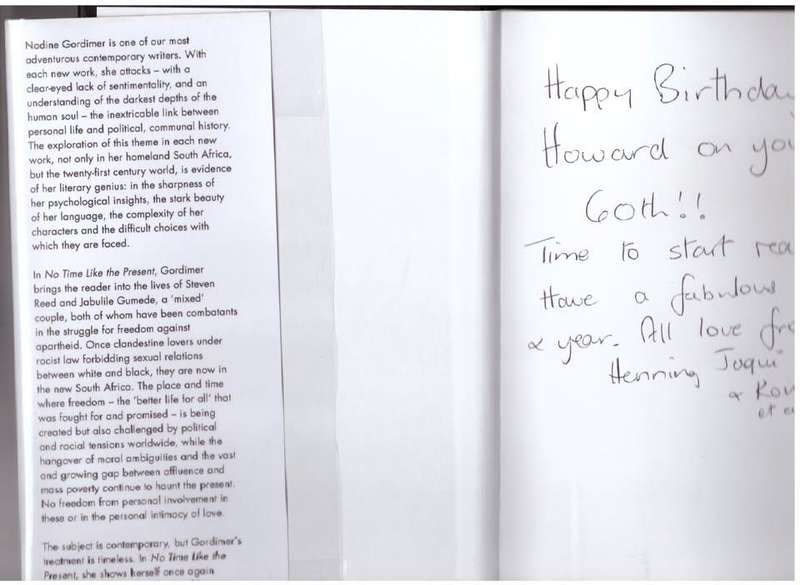 Nadine Gordimer is one of our most
adventurous contemporary writers. With
each new work, she attacks – with a
clear-eyed lack of sentimentality, and an
understanding of the darkest depths of the
human soul – the inextricable link between
personal life and political, communal history.
The exploration of this theme in each new
work, not only in her homeland South Africa,
but the twenty-first century world, is evidence
of her literary genius: in the sharpness of
her psychological insights, the stark beauty
of her language, the complexity of her
characters and the difficult choices with
which they are faced.
In No Time Like the Present, Gordimer
brings the reader into the lives of Steven
Reed and Jabulile Gumede, a 'mixed'
couple, both of whom have been combatants
in the struggle for freedom against
apartheid. Once clandestine lovers under
racist law forbidding sexual relations
between white and black, they are now in
the new South Africa. The place and time
where freedom – the 'better life for all' that
was fought for and promised – is being
created but also challenged by political
and racial tensions worldwide, while the
hangover of moral ambiguities and the vast
and growing gap between affluence and
mass poverty continue to haunt the present.
No freedom from personal involvement in
these or in the personal intimacy of love.
The subject is contemporary, but Gordimer's
treatment is timeless. In No Time Like the
Present, she shows herself once again
Happy Birthda
Howard on yo
60th!!
Time to start rea
Have a fabulous
& year. All love fro
Henning Juqui
& Kou
et